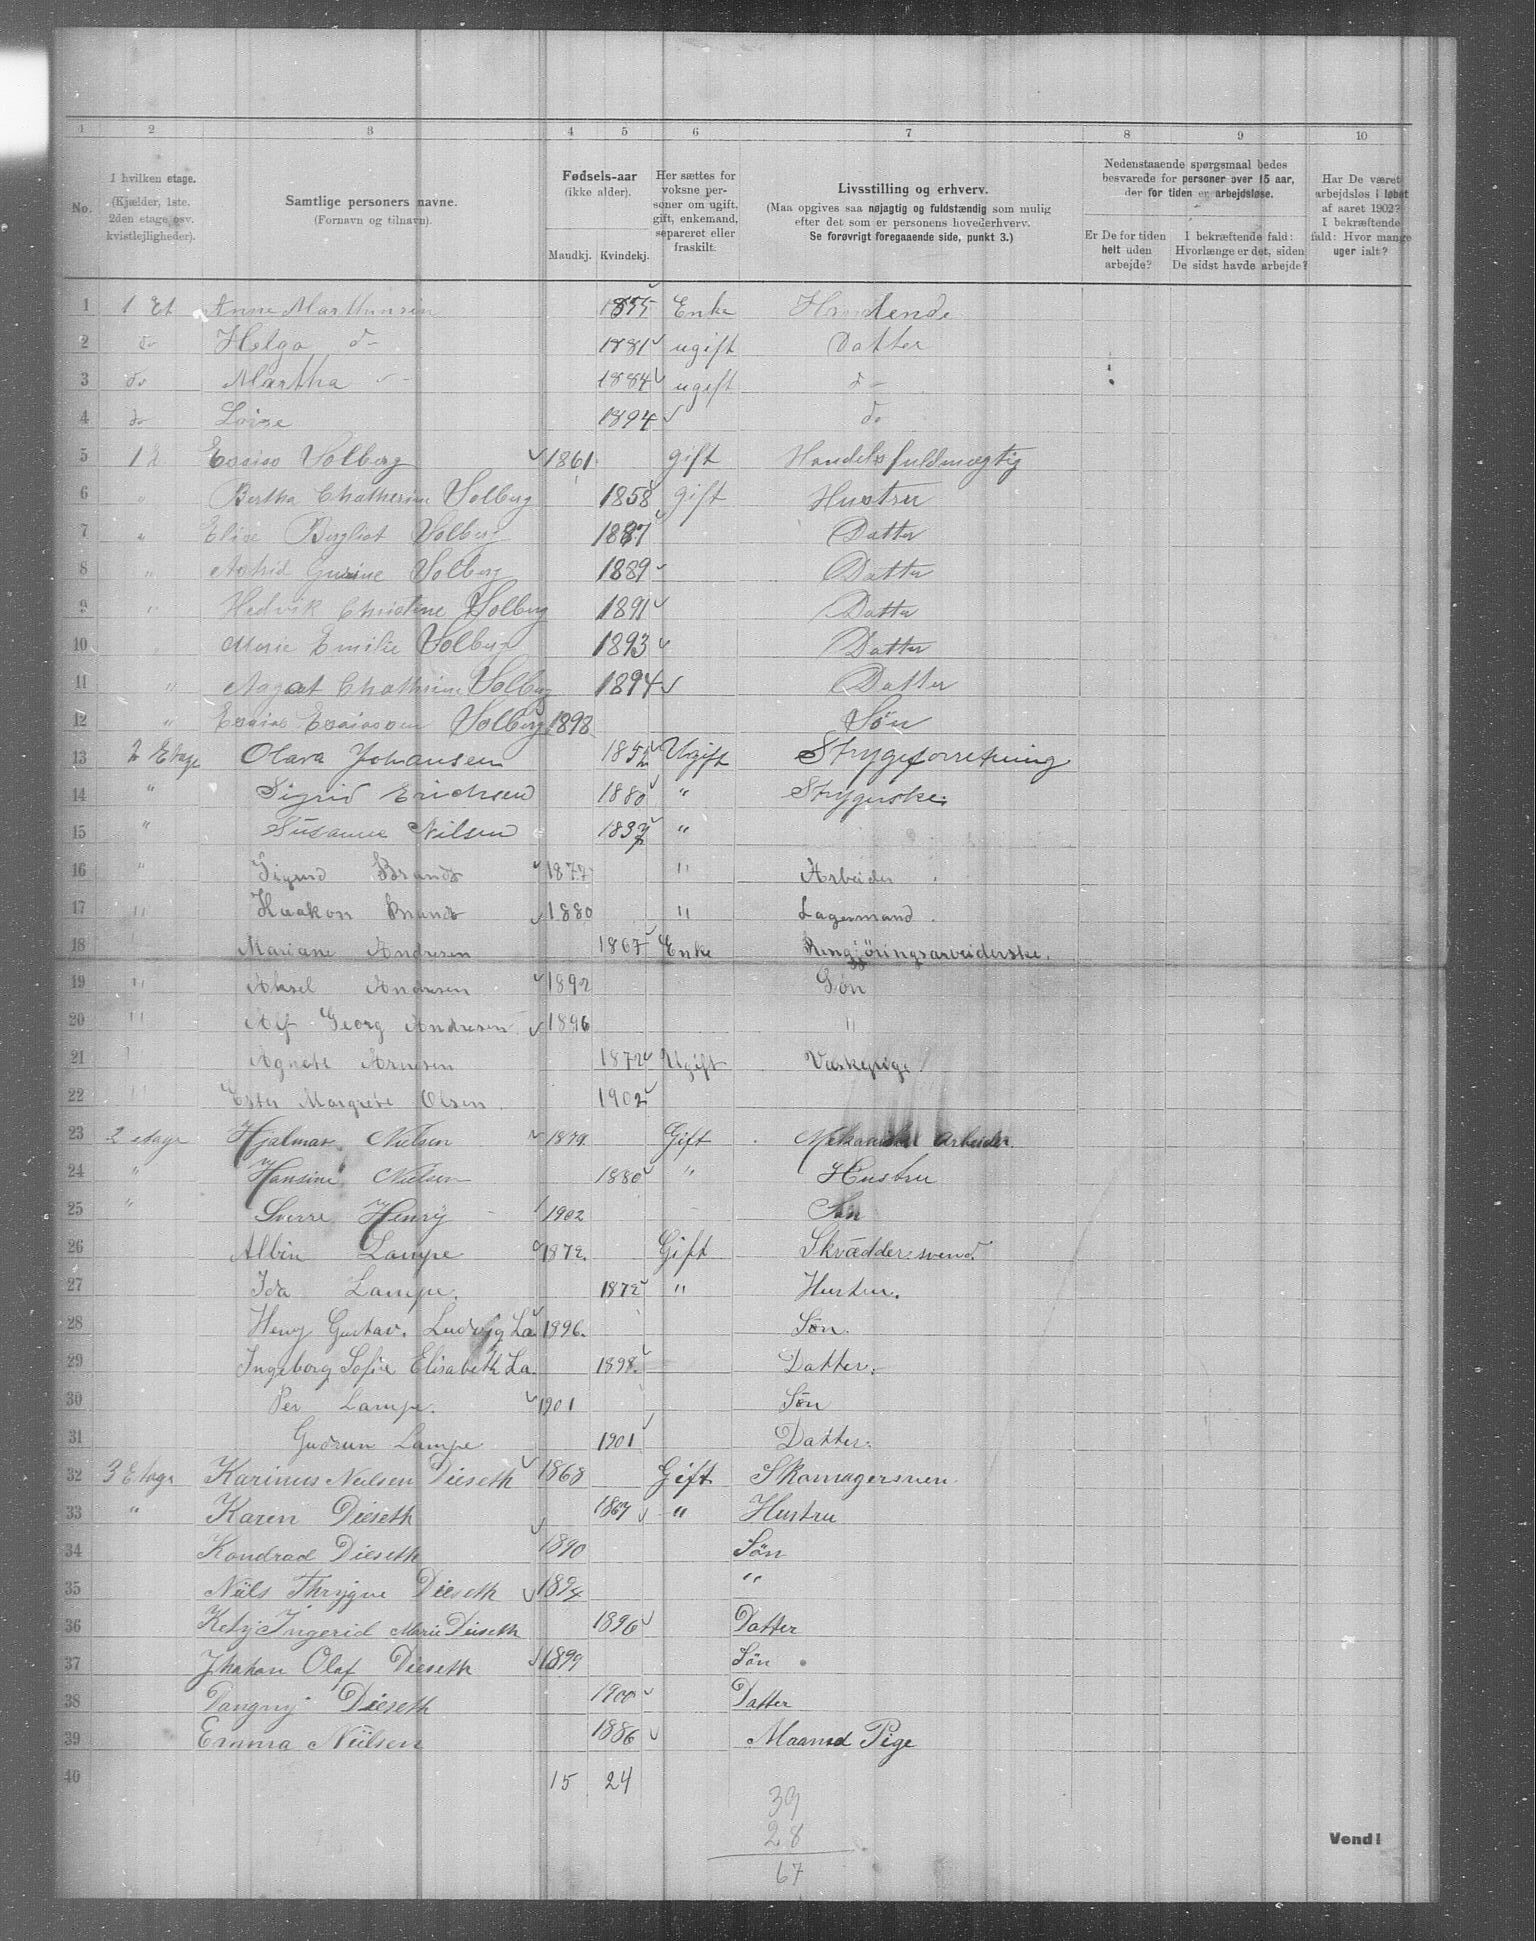 1 2 3 4 5 6 7 8 9 10
No.
I hvilken etage.
(Kjælder, 1ste.
2den etage osv.
kvistlejligheder).
Samtlige personers navne.
(Fornavn og tilnavn).
Fødsels-aar
(ikke alder).
Mandkj. Kvindekj.
Her sættes for
voksne per-
soner om ugift,
gift, enkemand,
separeret eller
fraskilt.
Livsstilling og erhverv.
(Maa opgives saa nøjagtig og fuldstændig som mulig
efter det som er personens hovederhverv.
Se forøvrigt foregaaende side, punkt 3.)
Nedenstaaende spørgsmaal bedes
besvarede for personer over 15 aar,
der for tiden er arbejdsløse.
Er De for tiden
helt uden
arbejde?
I bekræftende fald:
Hvorlænge er det, siden
De sidst havde arbejde?
Har De været
arbejdsløs i løbet
af aaret 1902?
I bekræftende
fald: Hvor mange
uger ialt?
1 1 Et Anne 1855 Enke
2 do Helga d- 1881 ugift Datter
3 do Martha - 1884 ugift d-
4 do Loise 1894 do
5 1 E Esaias Solberg 1861 gift Handelsfuldmægtig
6 " Bertha Chatherine Solberg 1858 gift Hustru
7 " Elise Bergliot Solberg 1887 Datter
8 " Astrid Solberg 1889 Datter
9 " Hedvik Christine Solberg 1891 Datter
10 " Marie Emilie Solberg 1893 Datter
11 " Aagot Chathrine Solberg 1894 Datter
12 " Esaias Esaiassen Solberg 1898 Søn
13 2 Etage Olava Johansen 1852 Ugift Strygeforretning
14 " Sigrid Erichsen 1880 " Strygerske
15 " Susanne Nilsen "
16 " Sigurd Brands 1877 " Arbeider
17 " Haakon Brands 1880 " Lagermand.
18 Mariane Andresen 1867 Enke Rengjöringsarbeiderske.
19 " Aksel Andresen 1892 Søn
20 " Alf Georg Andresen 1896 "
21 " Agnete Arnesen 1872 Ugift Vaskepige
22 " Ester Margrete Olsen 1902
23 2 etage Hjalmar Nielsen 1879. Gift Mekanisk Arbeider.
24 " Hansine Nielsen 1880 " Hustru
25 " Sverre Henry 1902 Søn
26 Albin Lampe 1872. Gift Skrædder:svend.
27 Ida Lampe. 1872 " Hustru.
28 Henry Gustav. Ludvig La 1896. Søn.
29 Ingeborg Sofie Elisabeth La. 1898. Datter.
30 Per Lampe. 1901 Søn
31 Gudrun Lampe 1901 Datter.
32 3 Etage Karinus Neilsen Dieseth 1868 Gift Skomagersven
33 " Karen Dieseth 1867 " Hustru
34 Kondrad Dieseth 1890 Sön
35 Niils Thrygve Dieseth 1894 "
36 Ketij Ingerid Marie Dieseth 1896 Datter
37 Olaf Dieseth 1899 Sön
38 Dangny Dieseth 1900 Datter
39 Emma Niilsen 1886 Pige
40 15 24
39
28
67
Vend!